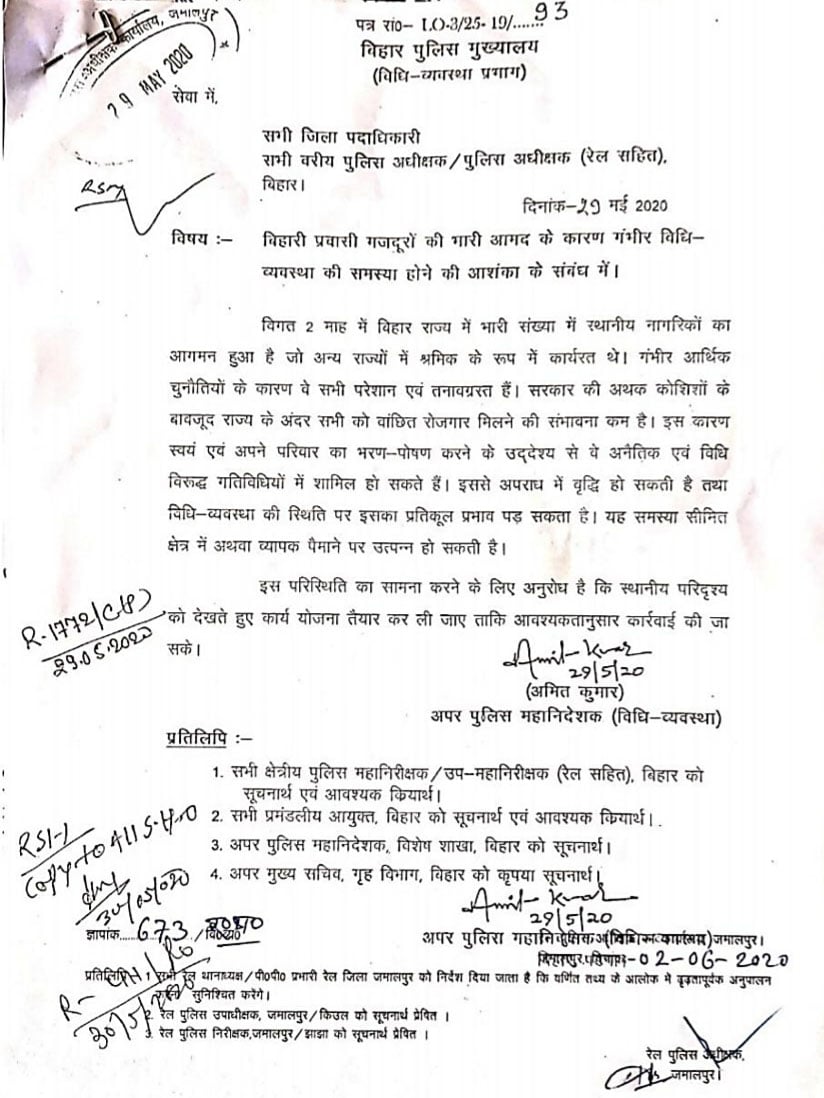 पत्र सं०– L.O-3/25-19/......93
बिहार पुलिस मुख्यालय
(विधि–व्यवस्था प्रभाग)
कार्यालय, जमालपुर
29 MAY 2020
सेवा में,
सभी जिला पदाधिकारी
सभी वरीय पुलिस अधीक्षक/पुलिस अधीक्षक (रेल सहित),
बिहार।
दिनांक–29 मई 2020
विषय :– बिहारी प्रवासी मजदूरों की भारी आमद के कारण गंभीर विधि–
व्यवस्था की समस्या होने की आशंका के संबंध में।
विगत 2 माह में बिहार राज्य में भारी संख्या में स्थानीय नागरिकों का
आगमन हुआ है जो अन्य राज्यों में श्रमिक के रूप में कार्यरत थे। गंभीर आर्थिक
चुनौतियों के कारण वे सभी परेशान एवं तनावग्रस्त हैं। सरकार की अथक कोशिशों के
बावजूद राज्य के अंदर सभी को वांछित रोजगार मिलने की संभावना कम है। इस कारण
स्वयं एवं अपने परिवार का भरण–पोषण करने के उद्देश्य से वे अनैतिक एवं विधि
विरूद्ध गतिविधियों में शामिल हो सकते हैं। इससे अपराध में वृद्धि हो सकती है तथा
विधि–व्यवस्था की स्थिति पर इसका प्रतिकूल प्रभाव पड़ सकता है। यह समस्या सीमित
क्षेत्र में अथवा व्यापक पैमाने पर उत्पन्न हो सकती है।
इस परिस्थिति का सामना करने के लिए अनुरोध है कि स्थानीय परिदृश्य
को देखते हुए कार्य योजना तैयार कर ली जाए ताकि आवश्यकतानुसार कार्रवाई की जा
सके।
R-1772/(CB)
29.05.2020
Amit Kumar
29/5/20
(अमित कुमार)
अपर पुलिस महानिदेशक (विधि–व्यवस्था)
प्रतिलिपि :–
1. सभी क्षेत्रीय पुलिस महानिरीक्षक/उप–महानिरीक्षक (रेल सहित), बिहार को
सूचनार्थ एवं आवश्यक क्रियार्थ।
2. सभी प्रमंडलीय आयुक्त, बिहार को सूचनार्थ एवं आवश्यक क्रियार्थ।
3. अपर पुलिस महानिदेशक, विशेष शाखा, बिहार को सूचनार्थ।
4. अपर मुख्य सचिव, गृह विभाग, बिहार को कृपया सूचनार्थ।
RSI-1
Copy to All S.H.O
30/05/020
Amit Kumar
29/5/20
अपर पुलिस महानिदेशक (विधि–व्यवस्था)
जमालपुर।
ज्ञापांक......673
02-06-2020
प्रतिलिपि 1 सभी रेल थानाध्यक्ष/पी०पी० प्रभारी रेल जिला जमालपुर को निर्देश दिया जाता है कि वर्णित तथ्य के आलोक में दृढ़तापूर्वक अनुपालन
सुनिश्चित करेंगे।
2. रेल पुलिस उपाधीक्षक, जमालपुर/किउल को सूचनार्थ प्रेषित ।
3. रेल पुलिस निरीक्षक,जमालपुर/झाझा को सूचनार्थ प्रेषित ।
30/5/2020
रेल पुलिस अधीक्षक,
जमालपुर।